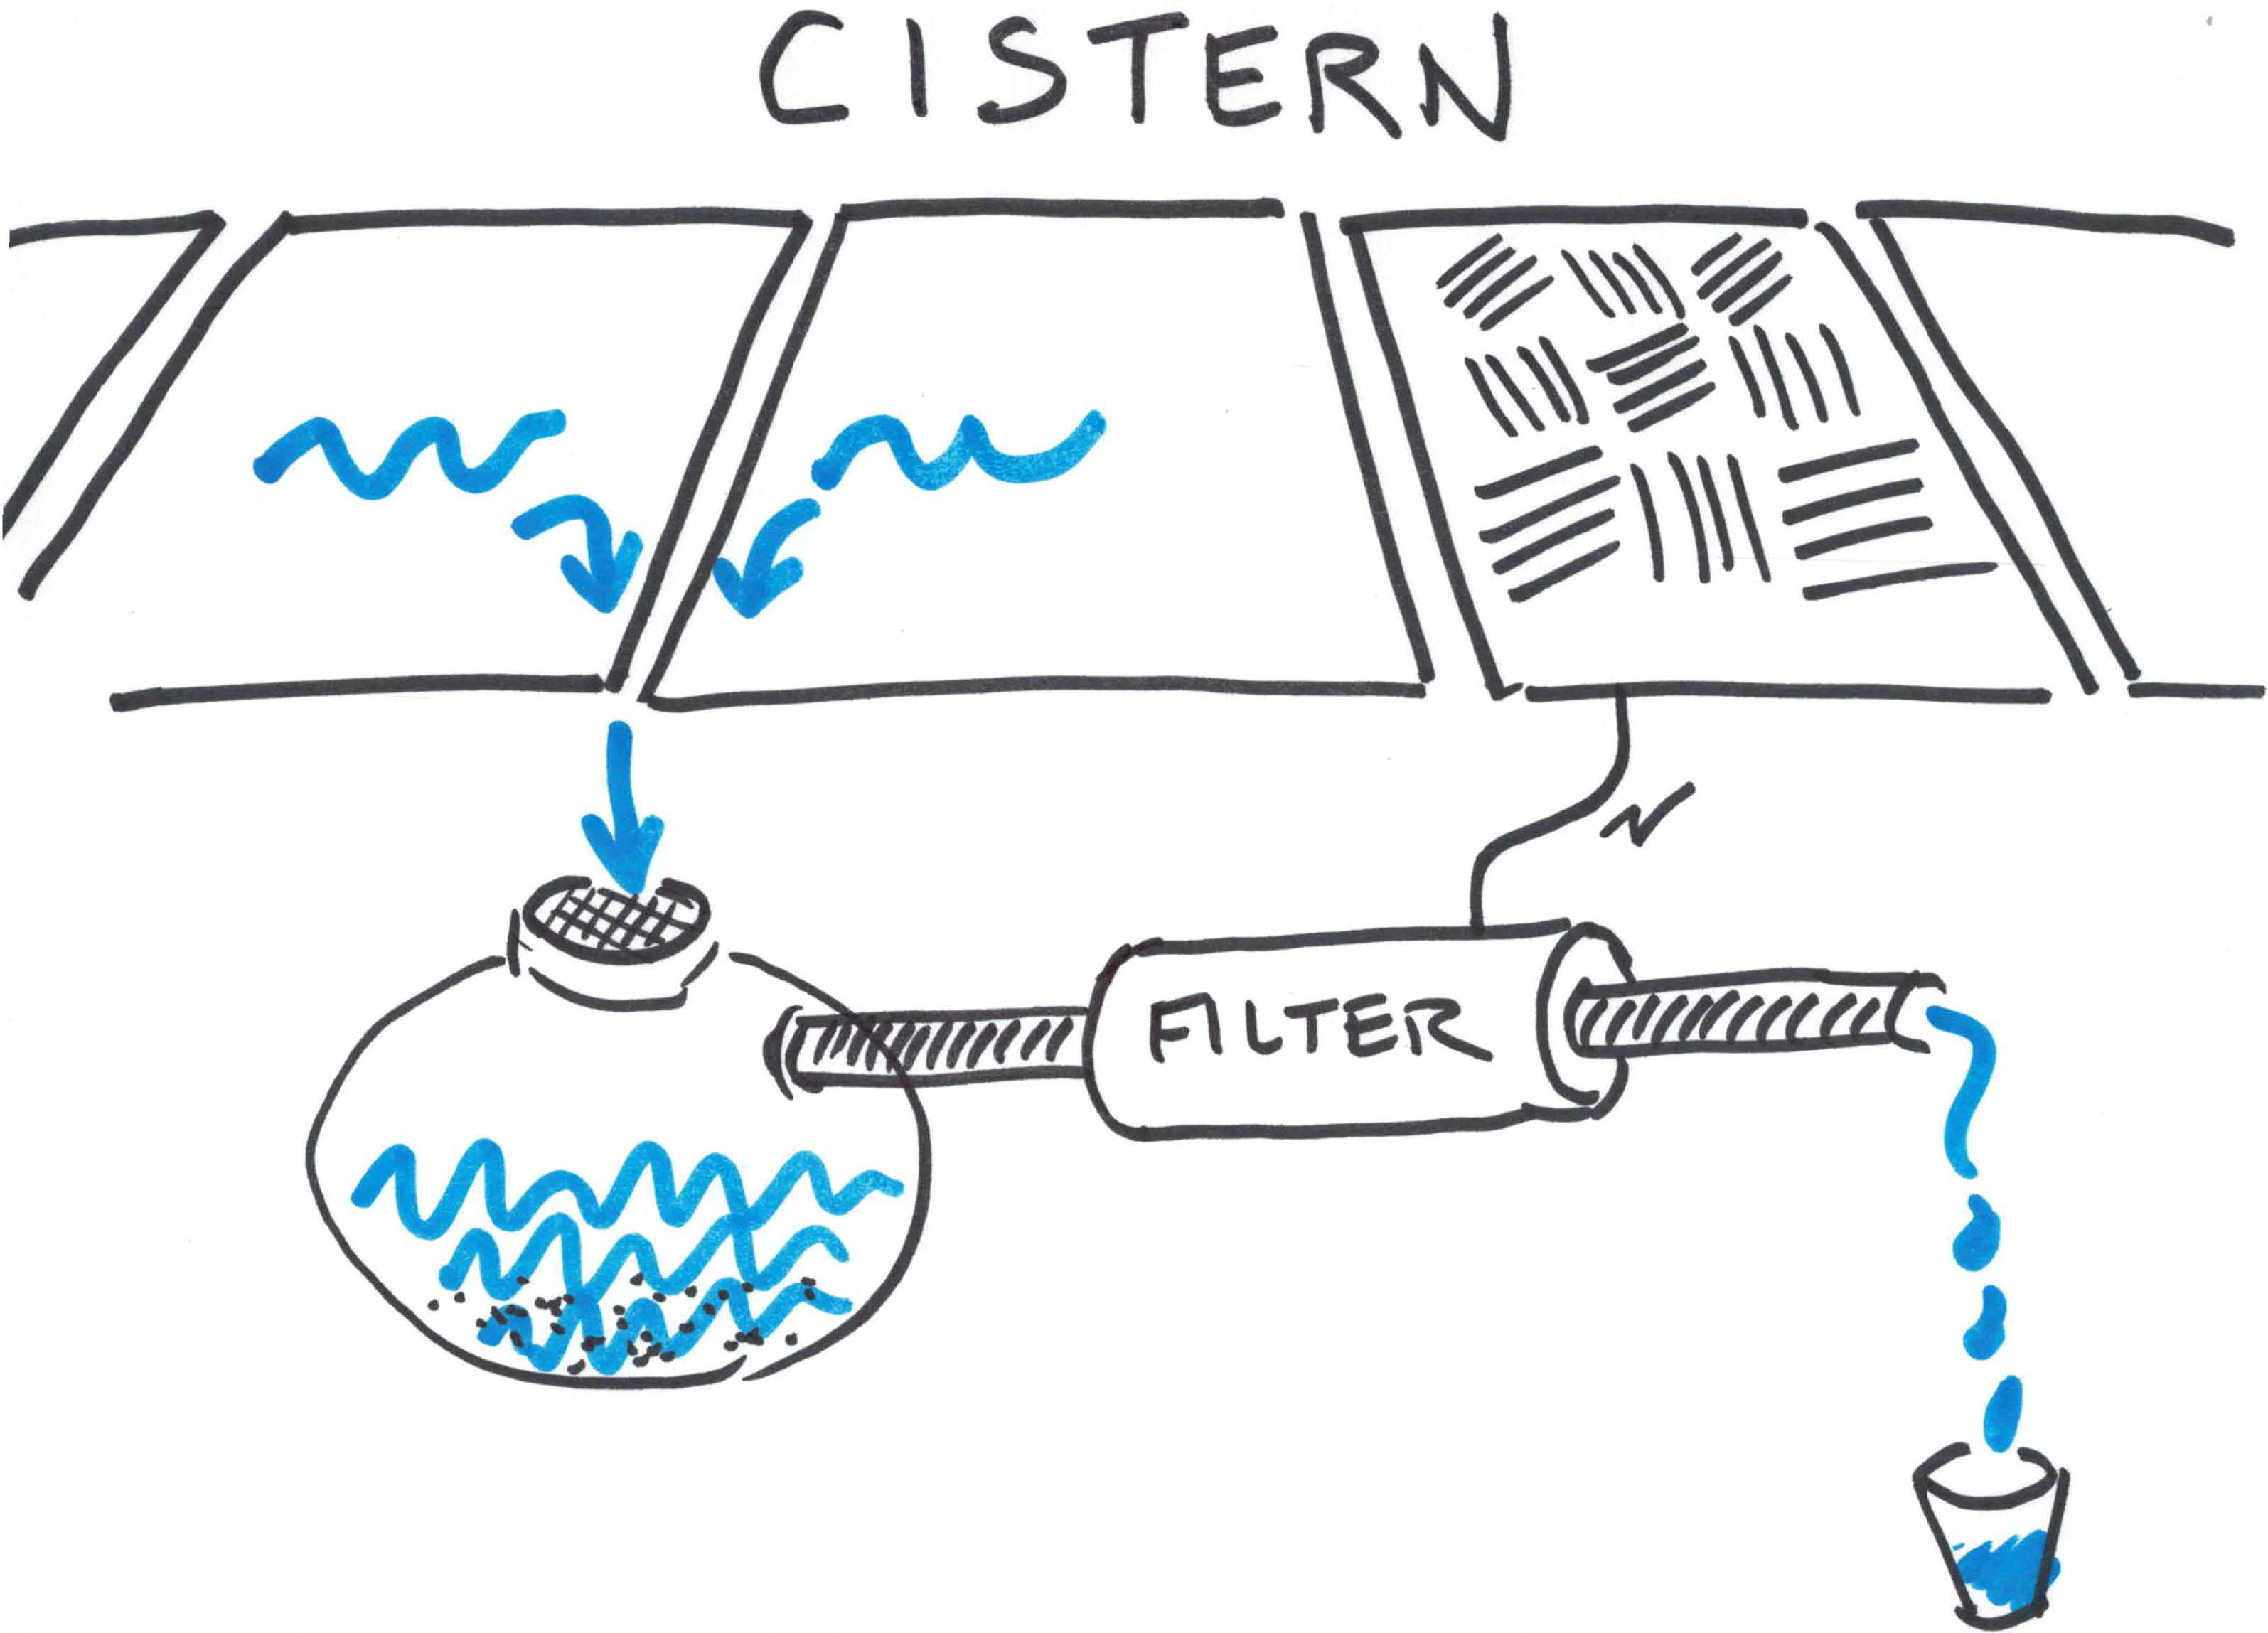 CISTERN
FILTER